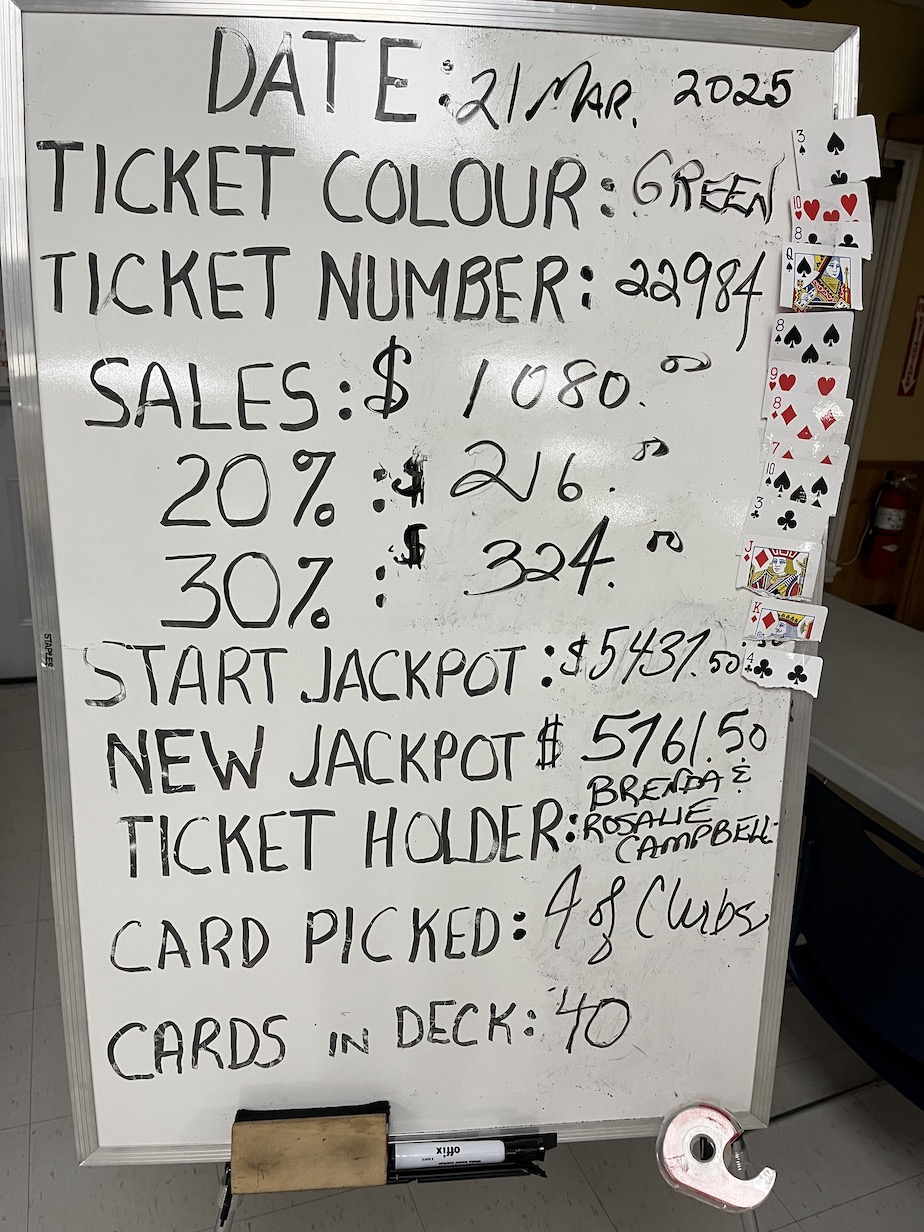 DATE: 21 MAR. 2025
TICKET COLOUR: GREEN
TICKET NUMBER: 22984
SALES: $ 1080.00
20% : $ 216.00
30% : $ 324.00
START JACKPOT: $5437.50
NEW JACKPOT $ 5761.50
TICKET HOLDER: BRENDA &
ROSALIE
CAMPBELL
CARD PICKED: 4 of Clubs
CARDS IN DECK: 40
3
10
8
Q
8
9
8
7
10
3
J
K
4
STAPLES
offix